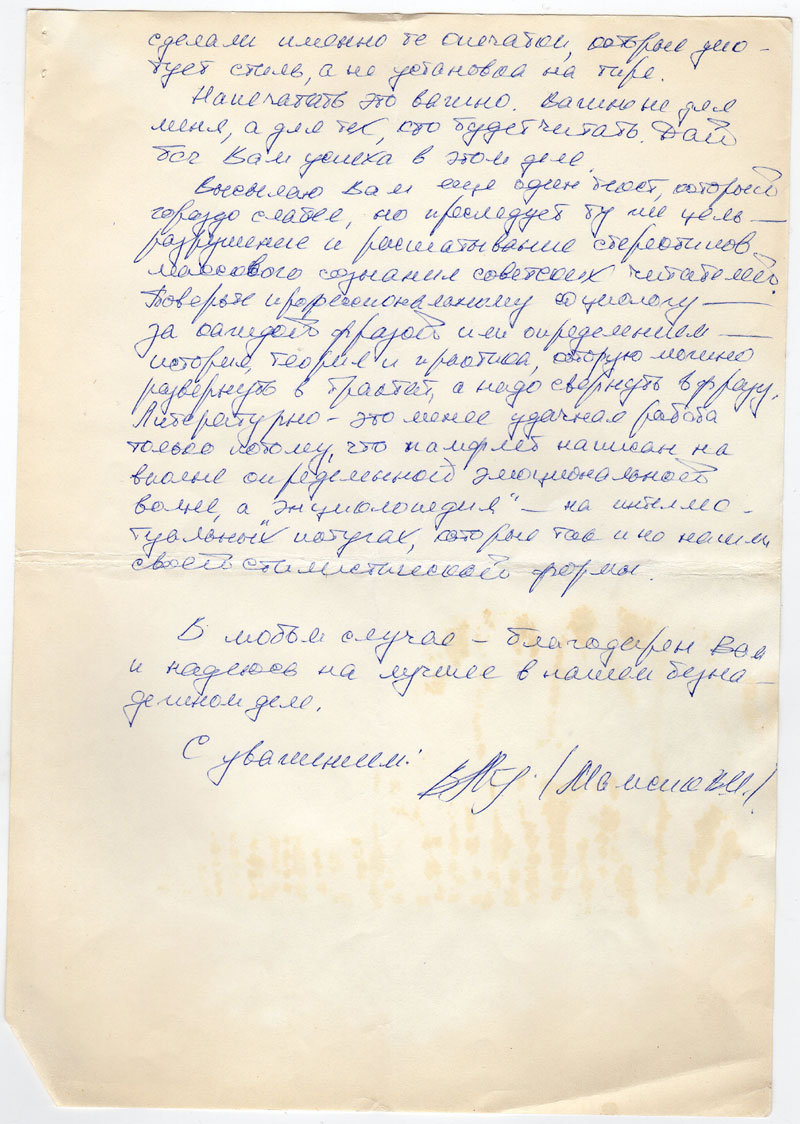 сделали именно те опечатки, которые дик-
тует стиль, а не установка на тире.
Напечатать это важно. Важно не для
меня, а для тех, кто будет читать. Дай
бог Вам успеха в этом деле.
Высылаю Вам еще один текст, который
гораздо слабее, но преследует ту же цель —
разрушение и расшатывание стереотипов
массового сознания советских читателей.
Поверьте профессиональному социологу —
за каждой фразой или определением —
история, теория и практика, которую можно
развернуть в трактат, а надо свернуть в фразу.
Литературно - это менее удачная работа
только потому, что памфлет написан на
вполне определенной эмоциональной
волне, а „энциклопедия" - на интеллек-
туальных потугах, которые так и не нашли
своей стилистической формы.
В любом случае - благодарен Вам
и надеюсь на лучшее в нашем безна-
дежном деле.
С уважением: